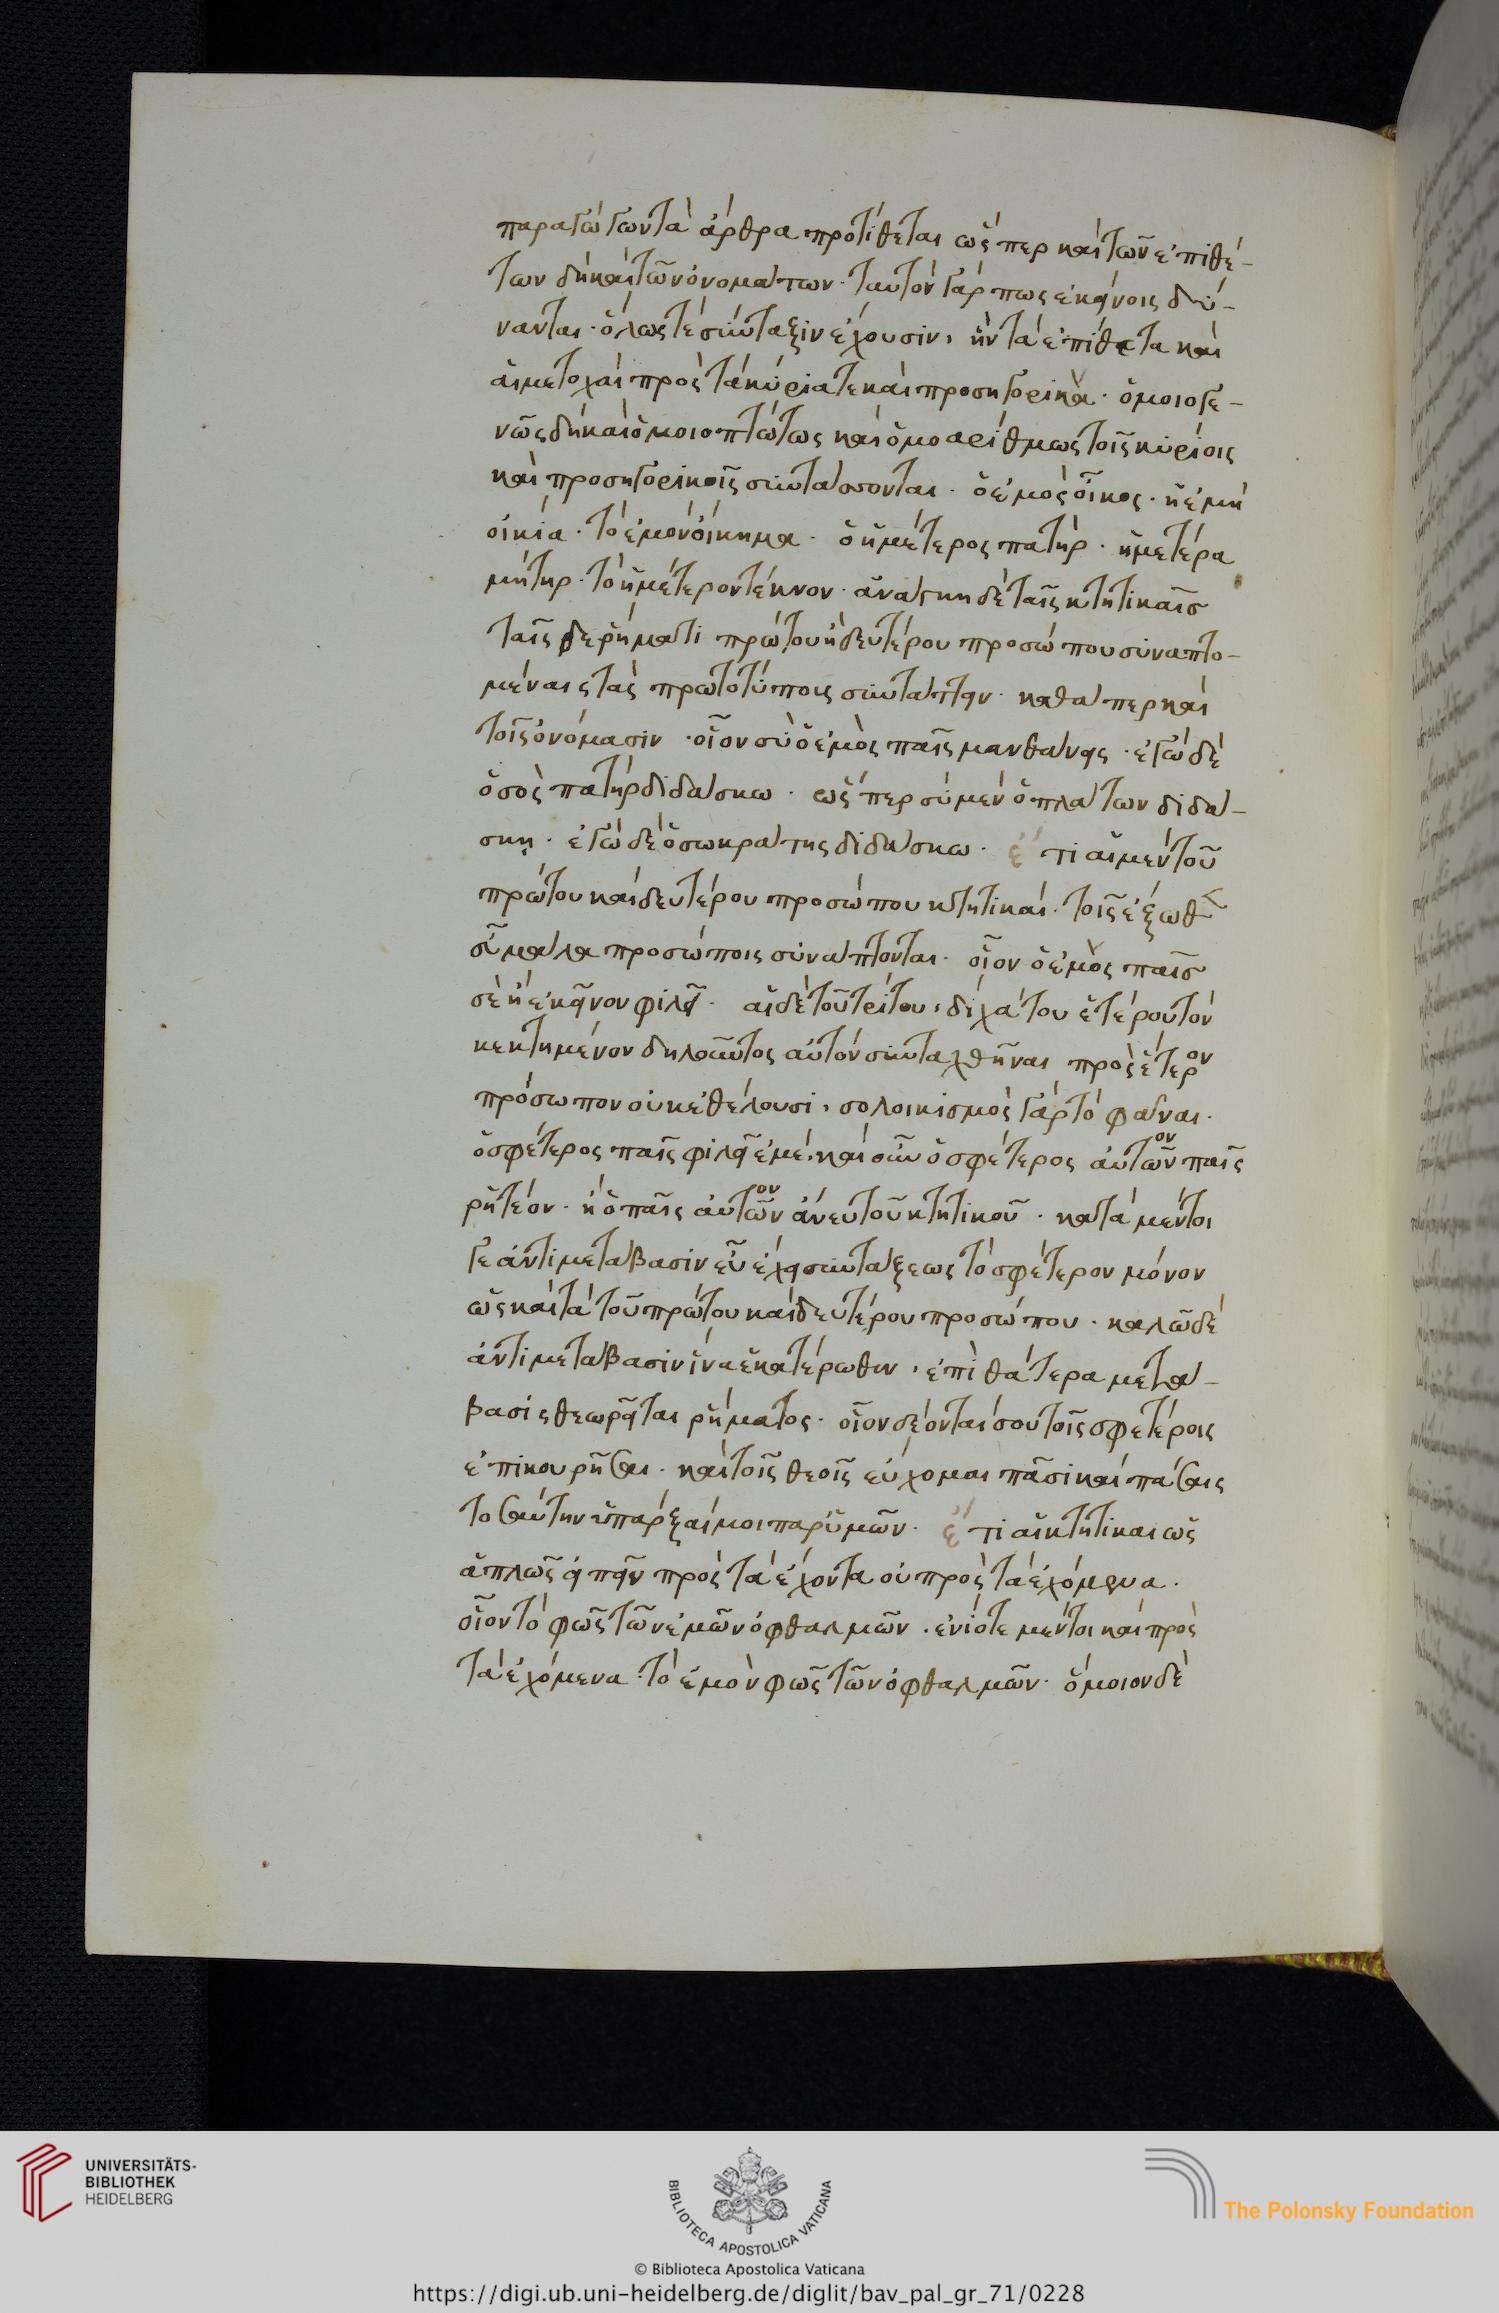 παραγώγων τὰ ἄρθρα προτίθεται ὥσπερ καὶ τῶν ἐπιθέ-
των δὴ καὶ τῶν ὀνομάτων· ταυτὸν γάρ πως ἐκείνοις δύ-
νανται· ὅλως τε σύνταξιν ἔχουσιν, ἣν τὰ ἐπίθετα καὶ
αἱ μετοχαὶ πρὸς τὰ κύριά τε καὶ προσηγορικά· ὁμοιογε-
νῶς δὴ καὶ ὁμοιοπτώτως καὶ ὁμοαρίθμως τοῖς κυρίοις
καὶ προσηγορικοῖς συντάσσονται· ὁ ἐμὸς οἶκος· ἡ ἐμὴ
οἰκία· τὸ ἐμὸν οἴκημα· ὁ ἡμέτερος πατὴρ· ἡμετέρα
μήτηρ· τὸ ἡμέτερον τέκνον· ἀνάγκη δὲ ταῖς κτητικαῖς
ταῖς γε ῥήματι πρώτου ἢ δευτέρου προσώπου συναπτο-
μέναις τὰς πρωτοτύποις συντάττειν· καθάπερ καὶ
τοῖς ὀνόμασιν· οἷον σὺ ὁ ἐμὸς παῖς μανθάνεις· ἐγὼ δὲ
ὁ σὸς πατὴρ διδάσκω· ὥσπερ σὺ μὲν ὁ πλάτων διδά-
σκῃ· ἐγὼ δὲ ὁ σωκράτης διδάσκω· ἔτι αἱ μὲν τοῦ
πρώτου καὶ δευτέρου προσώπου κτητικαί· τοῖς ἔξωθεν
εὖ μάλα προσώποις συνάπτονται· οἷον ὁ ἐμὸς παῖς
σὲ ἢ ἐκεῖνον φιλεῖ· αἱ δὲ τοῦ τρίτου, δίχα του ἑτέρου τὸν
κεκτημένον δηλοῦντος αὐτὸν συνταχθῆναι πρὸς ἕτερον
πρόσωπον οὐκ ἐθέλουσι, σολοικισμὸς γὰρ τὸ φάναι·
ὁ σφέτερος παῖς φιλεῖ ἐμέ· καὶ οὖν ὁ σφέτερος αὐτῶνον παῖς
ῥητέον· ἢ ὁ παῖς αὐτῶνον ἄνευ τοῦ κτητικοῦ· κατὰ μέντοι
γε ἀντιμετάβασιν εὖ ἔχει συντάξεως τὸ σφέτερον μόνον
ὡς καὶ τὰ τοῦ πρώτου καὶ δευτέρου προσώπου· καλῶ δὲ
ἀντιμετάβασιν ἵνα ἑκατέρωθεν, ἐπὶ θάτερα μετά-
βασις θεωρεῖται ῥήματος· οἷον δέονταί σου τοῖς σφετέροις
ἐπικουρῆσαι· καὶ τοῖς θεοῖς εὔχομαι πᾶσι καὶ πάσαις
τοσαύτην ὑπάρξαι μοι παρ' ὑμῶν· ἔτι αἱ κτητικαὶ ὡς
ἁπλῶς εἰπεῖν πρὸς τὰ ἔχοντα οὐ πρὸς τὰ ἐχόμενα·
οἷον τὸ φῶς τῶν ἐμῶν ὀφθαλμῶν· ἐνίοτε μέντοι καὶ πρὸς
τὰ ἐχόμενα· τὸ ἐμὸν φῶς τῶν ὀφθαλμῶν· ὅμοιον δὲ
UNIVERSITÄTS-
BIBLIOTHEK
HEIDELBERG
BIBLIOTECA APOSTOLICA VATICANA
The Polonsky Foundation
© Biblioteca Apostolica Vaticana
https://digi.ub.uni-heidelberg.de/diglit/bav_pal_gr_71/0228